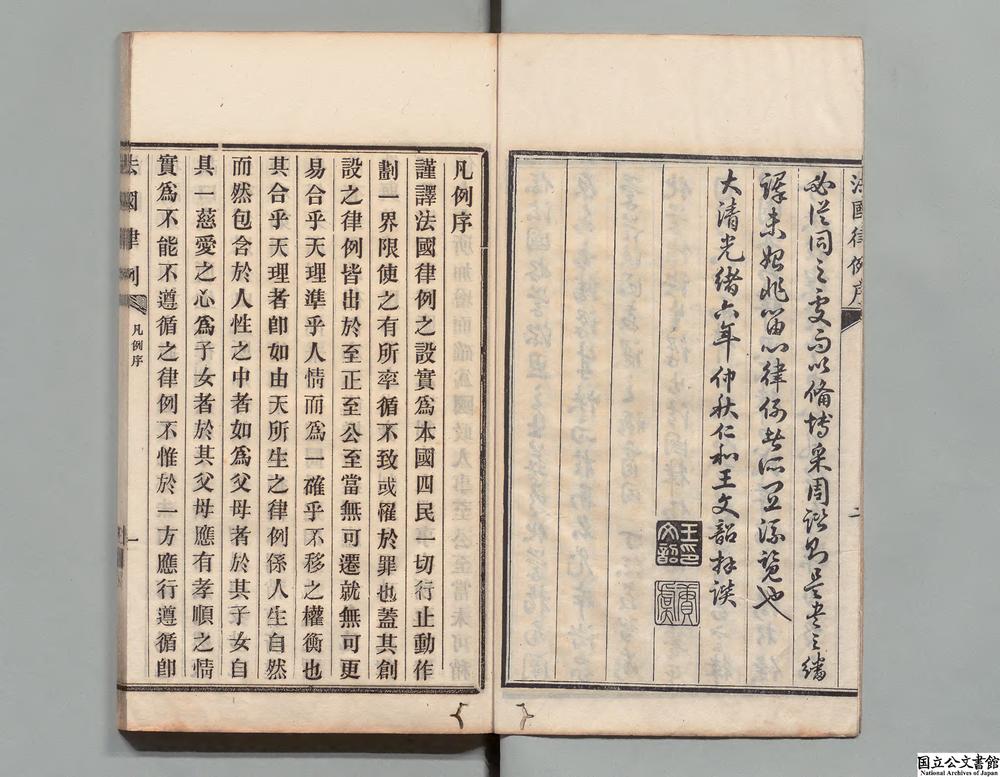 法國律例序
二
必從同之處而以備博采周諮則是書之繙
譯未始非留心律例者所宜流覽也
大清光緒六年仲秋仁和王文韶拜譔
王印文韶
夔虞
凡例序
謹譯法國律例之設實爲本國四民一切行止動作
劃一界限使之有所率循不致或罹於罪也蓋其創
設之律例皆出於至正至公至當無可遷就無可更
易合乎天理準乎人情而爲一確乎不移之權衡也
其合乎天理者卽如由天所生之律例係人生自然
而然包含於人性之中者如爲父母者於其子女自
具一慈愛之心爲子女者於其父母應有孝順之情
實爲不能不遵循之律例不惟於一方應行遵循卽
法國律例
凡例序
一
国立公文書館
National Archives of Japan